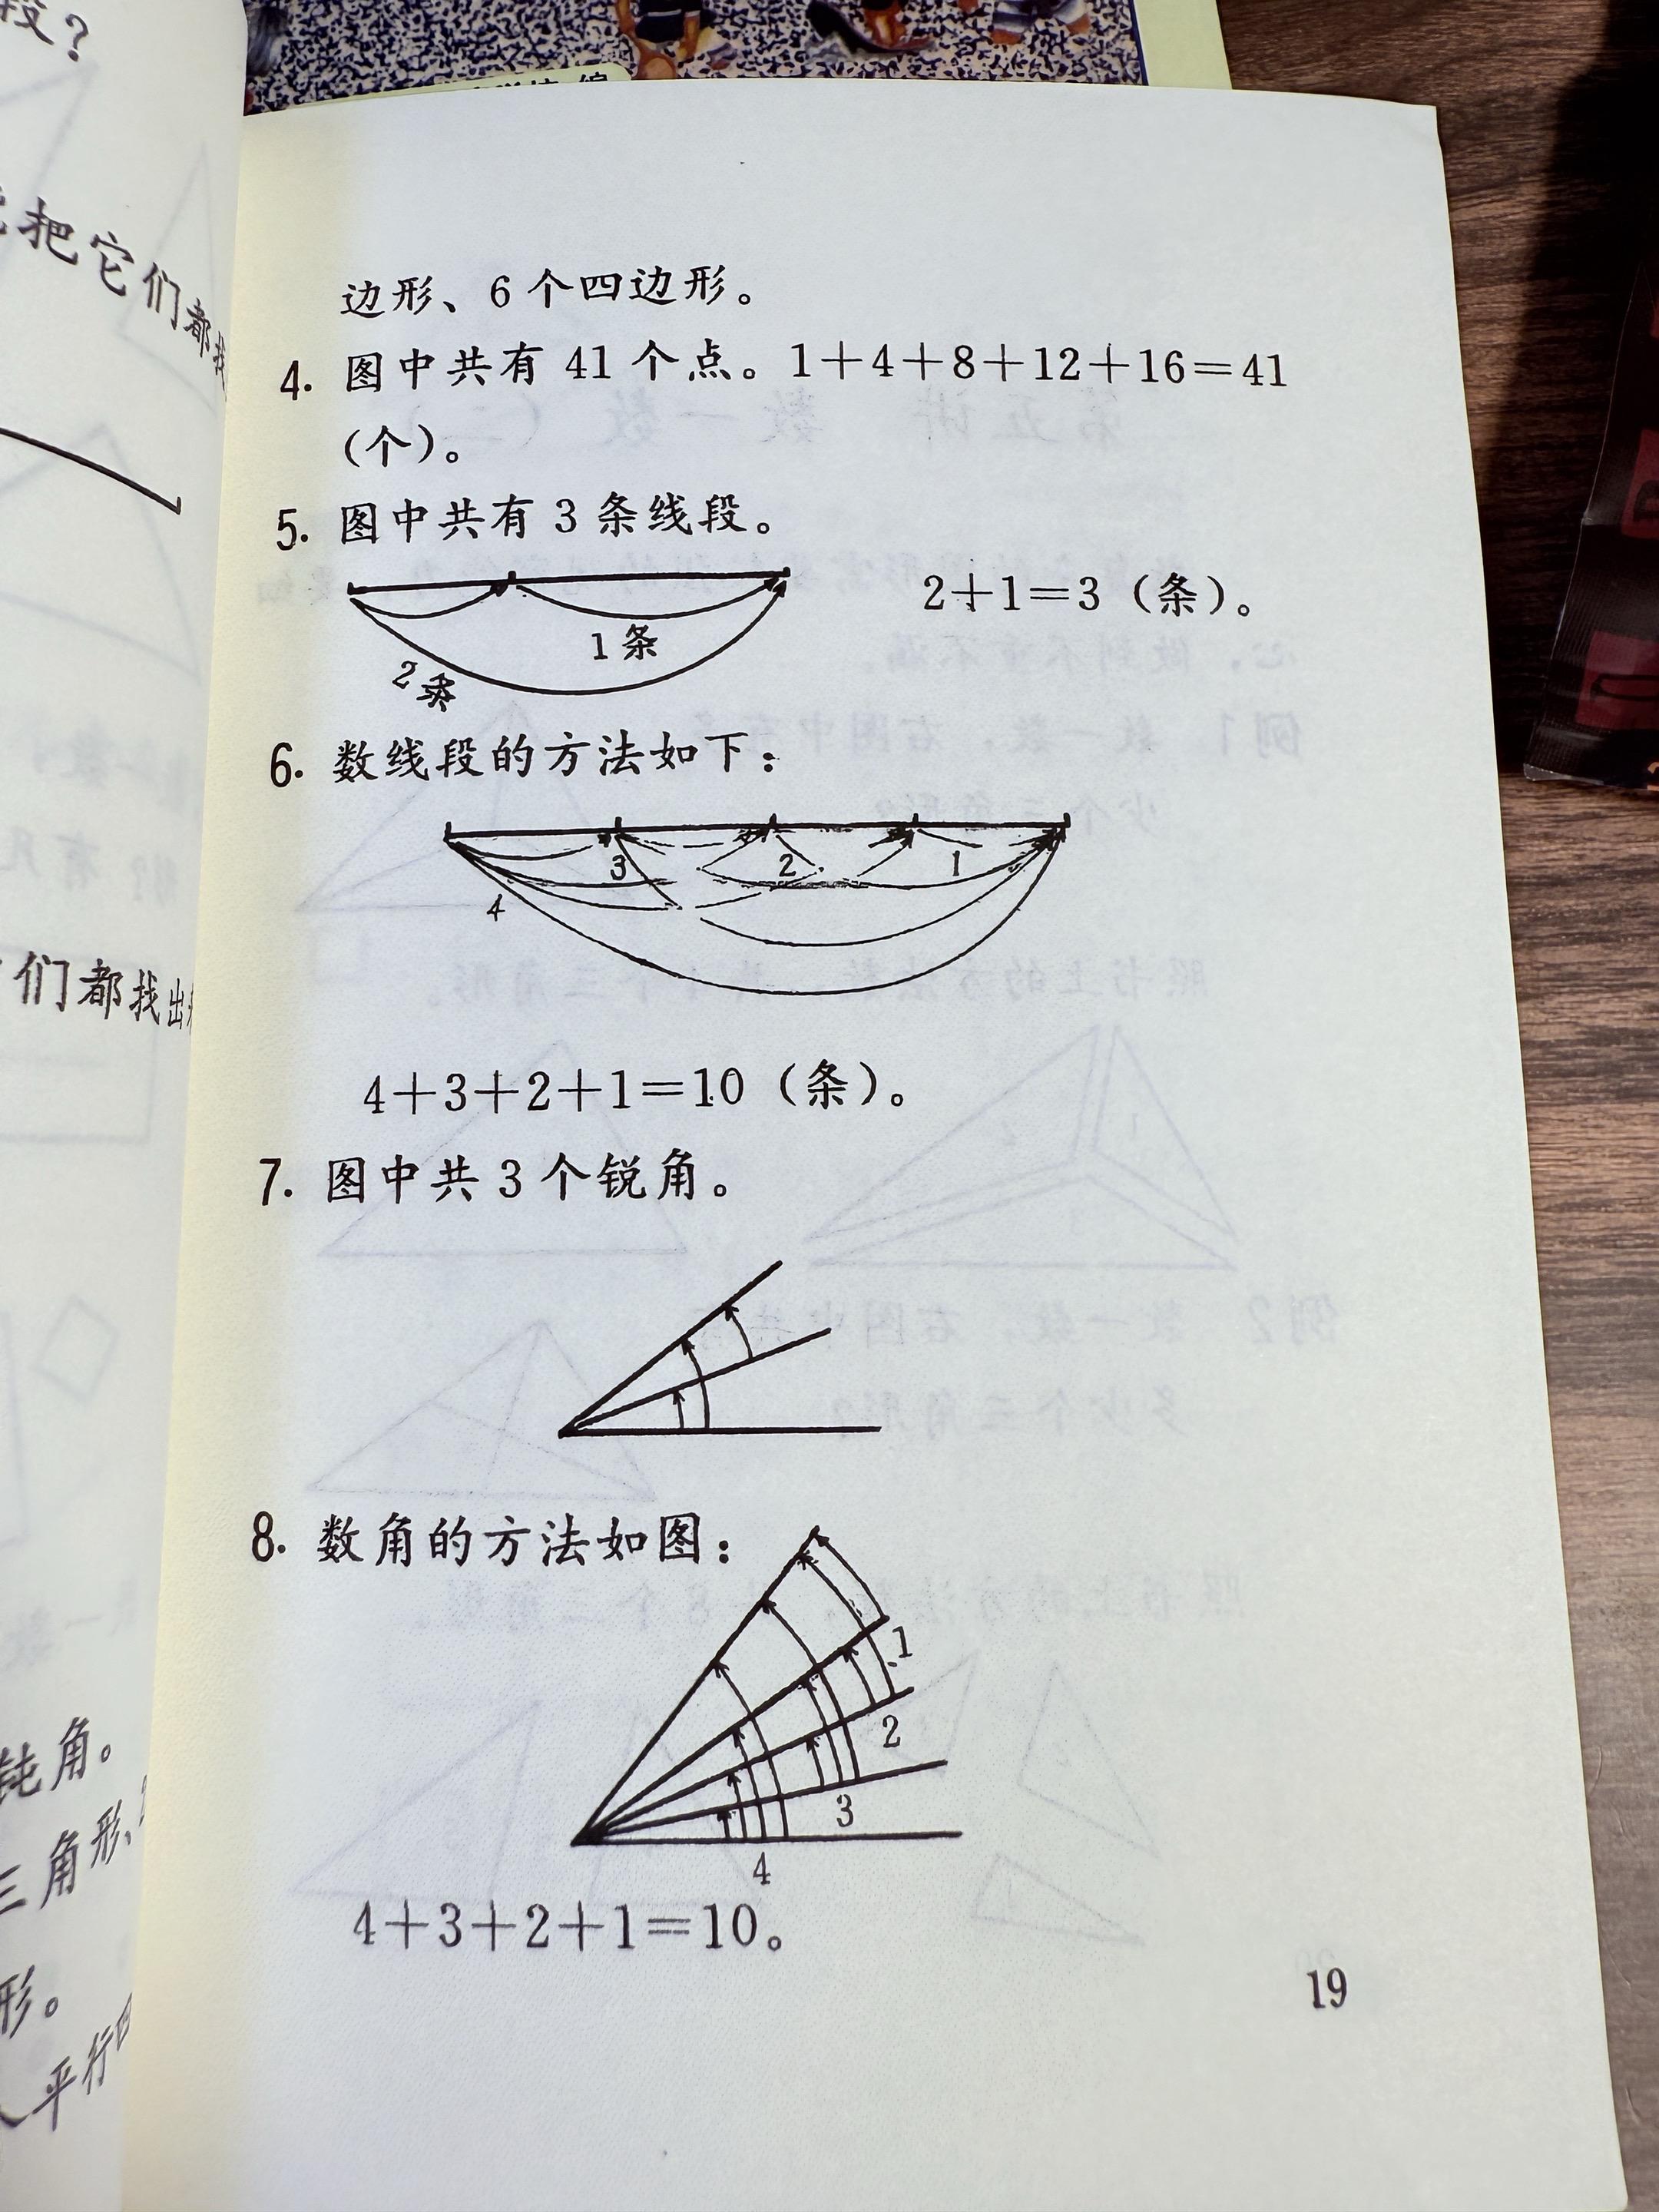 段?
把它们都
们都找出
钝角。
三角形、
形。
平行四
边形、6个四边形。
4. 图中共有 41 个点。1+4+8+12+16=41
(个)。
5. 图中共有 3 条线段。
2+1=3(条)。
1条
2条
6. 数线段的方法如下:
3 2 1
4
4+3+2+1=10(条)。
7. 图中共 3 个锐角。
8. 数角的方法如图:
1
2
3
4
4+3+2+1=10。
19